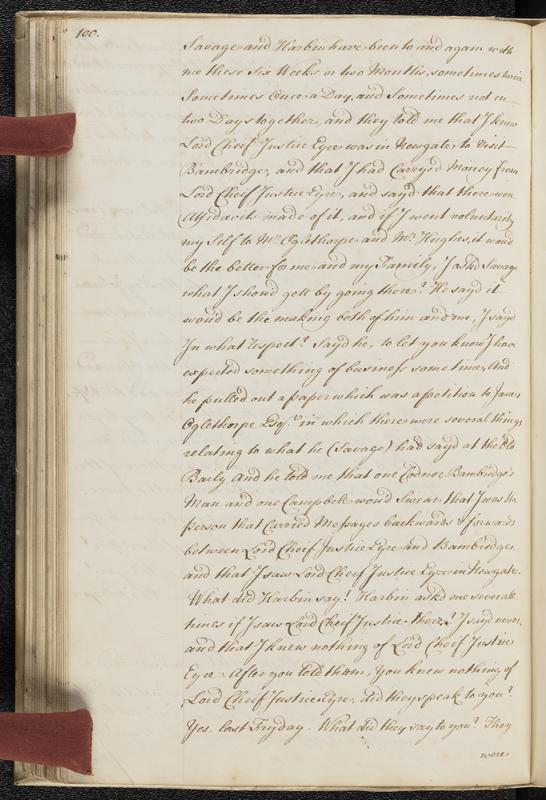 100.
Savage and Harbin have been to and again with
me these Six Weeks or two Months, sometimes twice
Sometimes Once a Day, and Sometimes not in
two Days together, and they told me that I knew
Lord Cheif Justice Eyre was in Newgate to Visit
Bambridge, and that I had Carryed Money from
Lord Cheif Justice Eyre, and sayd that there were
Affidavits made of it, and if I went voluntarily
my Self to Mr. Oglethorpe and Mr. Hughes, it would
be the better for me and my Family, I askd Savage
what I should gett by going there? He sayd it
would be the making both of him and me, I sayd
In what respect? Sayd he, to let you know I have
expected something of business some time, And
he pulled out a paper which was a petition to James
Oglethorpe Esqr. in which there were several things
relating to what he (Savage) had sayd at the Old
Baily And he told me that one Codner Bambridge's
Man and one Campbell would Swear that I was the
person that Carried Messages backwards & forwards
between Lord Cheif Justice Eyre and Bambridge
and that I saw Lord Cheif Justice Eyre in Newgate.
What did Harbin say? Harbin askd me severale
times if I saw Lord Cheif Justice there? I sayd never
and that I knew nothing of Lord Cheif Justice
Eyre. After you told them, you knew nothing of
Lord Cheif Justice Eyre, did they speak to you?
Yes, last Fryday. What did they say to you? They
were